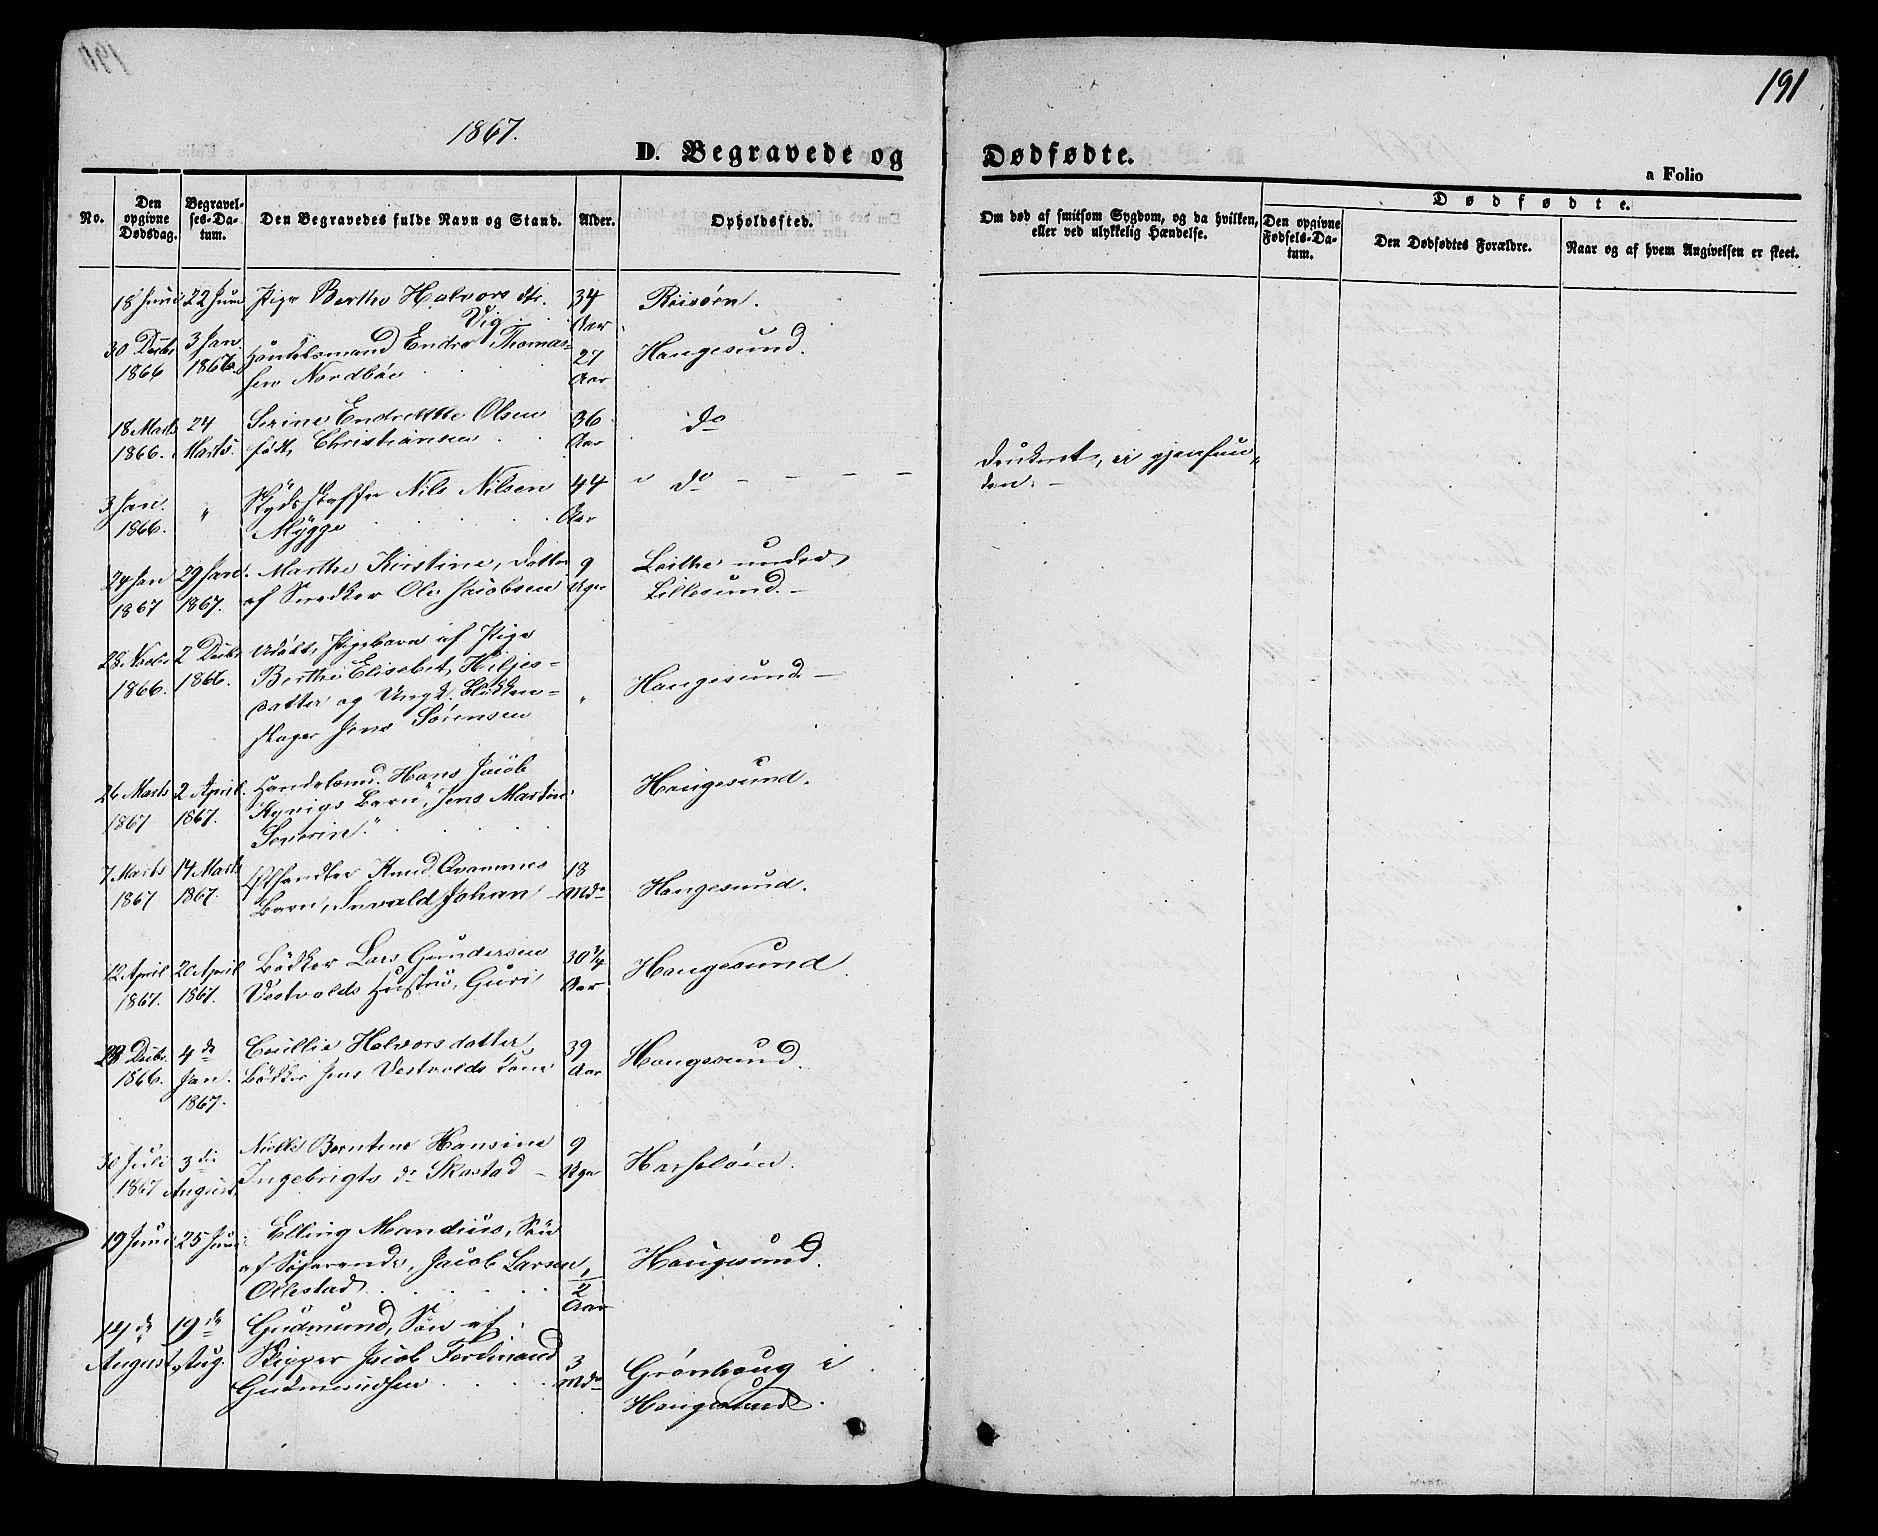 191
1867.
D. Begravede og Dødfødte.
a Folio
No.
Den opgivne Dødsdag.
Begravel-
ses-Da-
tum.
Den Begravedes fulde Navn og Stand.
Alder.
Opholdssted.
Om død af smitsom Sygdom, og da hvilken,
eller ved ulykkelig Hændelse.
Dødfødte.
Den opgivne
Fødsels-Da-
tum.
Den Dødfødtes Forældre.
Naar og af hvem Angivelsen er skeet.
18 Juni 22 Juni Pige Berthe Halvors dtr. 34 Røisørn.
Vig Aar
30 Decbr 3 Jan. Handelsmand Endre Thomas- 27 Haugesund.
1866 1867. sen Nordböe Aar
18 Marts 24 Serine Endrette Olsen 36 do
1866. Marts. født Christiansen Aar
3 Jan. " Skydsskaffer Nils Nilsen 44 " do - - - - druknet, ei gjenfun-
1866. Mygge Aar den. -
24 Jan 29 Jan. Marthe Kirstine, Datter 9 Leithe under
1867 1867. af Snedker Ole Jacobsen Uger Lillesund. -
28 Novbr 2 Decbr Udöbt Pigebarn af Pige
1866. 1866. Berthe Elisabet Kiljes-
datter og Ungk. Blikken- " Haugesund -
slager Jens Sörensen
26 Marts 2 April. Handelsmd. Hans Jacob Haugesund.
1867 1867. Barn, "Jens Martin
Severin."
7 Marts 14 Marts Knud Qvamnes 18 Haugesund.
1867 1867. Barn, Johan Mdr
12 April 20 April Bödker Lars Gundersen 30 3/4 Haugesund.
1867. 1867. Vestvolds Hustru, Guri Aar
28 Decbr. 4 de Cecilie Halvorsdatter, 39 Haugesund.
1866. Jan. Bödker Jens Vestvolds Kone Aar
1867.
30 Juli 3 die Berntine Hansine 9
1867 August Ingebrigts dr Skastad - Uger
19 Juni 25 Juni Elling Mandius, Sön
af Söfarende, Jacob Larsen 1/2 Haugesund.
Aar
14 de 19 de Gudmund, Sön af
August Aug. Skipper Jacob Ferdinand 3 Grönhaug i
Gudmundsen Mdr Haugesund.